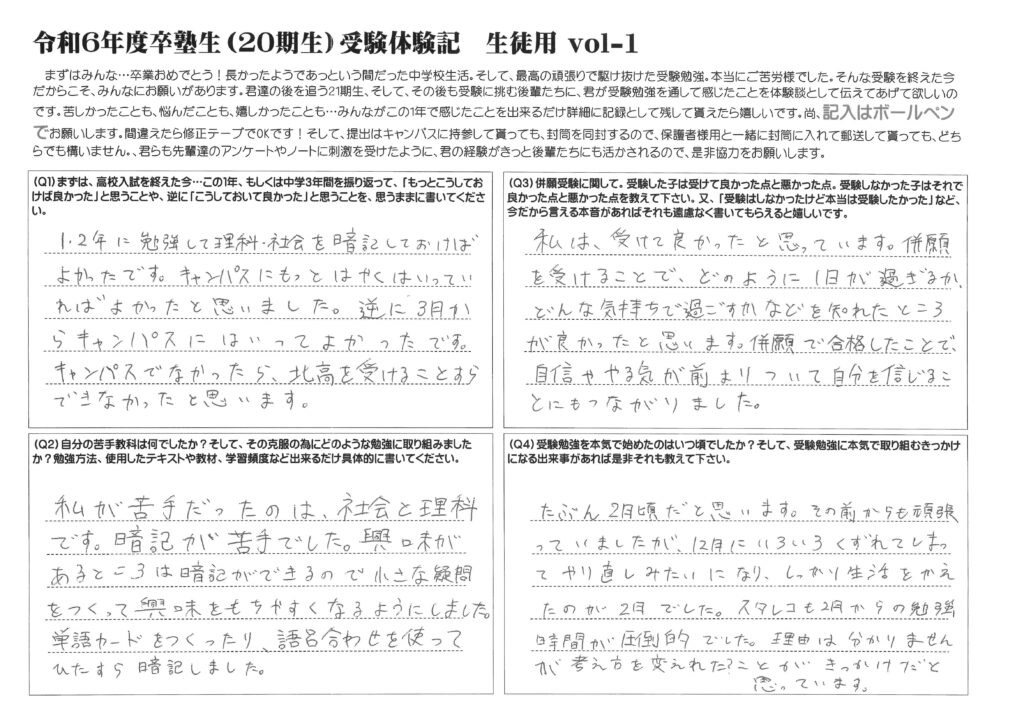 令和6年度卒塾生(20期生)受験体験記 生徒用 vol-1
まずはみんな…卒業おめでとう!長かったようであっという間だった中学校生活。そして、最高の頑張りで駆け抜けた受験勉強。本当にご苦労様でした。そんな受験を終えた今
だからこそ、みんなにお願いがあります。君達の後を追う21期生、そして、その後も受験に挑む後輩たちに、君が受験勉強を通して感じたことを体験談として伝えてあげて欲しいの
です。苦しかったことも、悩んだことも、嬉しかったことも…みんながこの1年で感じたことを出来るだけ詳細に記録として残して貰えたら嬉しいです。尚、記入はボールペン
でお願いします。間違えたら修正テープでOKです!そして、提出はキャンパスに持参して貰っても、封筒を同封するので、保護者様用と一緒に封筒に入れて郵送して貰っても、どち
らでも構いません。、君らも先輩達のアンケートやノートに刺激を受けたように、君の経験がきっと後輩たちにも活かされるので、是非協力をお願いします。
(Q1)まずは、高校入試を終えた今…この1年、もしくは中学3年間を振り返って、「もっとこうしてお
けば良かった」と思うことや、逆に「こうしておいて良かった」と思うことを、思うままに書いてくださ
い。
1.2年に勉強して理科・社会を暗記しておけば
よかったです。キャンパスにもっとはやくはいってい
ればよかったと思いました。逆に3月か
らキャンパスにはいってよかったです。
キャンパスでなかったら、北高を受けることすら
できなかったと思います。
(Q2)自分の苦手教科は何でしたか?そして、その克服の為にどのような勉強に取り組みました
か?勉強方法、使用したテキストや教材、学習頻度など出来るだけ具体的に書いてください。
私が苦手だったのは、社会と理科
です。暗記が苦手でした。興味が
あるところは暗記ができるので小さな疑問
をつくって興味をもちやすくなるようにしました。
単語カードをつくったり、語呂合わせを使って
ひたすら暗記しました。
(Q3)併願受験に関して。受験した子は受けて良かった点と悪かった点。受験しなかった子はそれで
良かった点と悪かった点を教えて下さい。又、「受験はしなかったけど本当は受験したかった」など、
今だから言える本音があればそれも遠慮なく書いてもらえると嬉しいです。
私は、受けて良かったと思っています。併願
を受けることで、どのように1日が過ぎるか、
どんな気持ちで過ごすかなどを知れたところ
が良かったと思います。併願で合格したことで、
自信ややる気が前よりついて自分を信じるこ
とにもつながりました。
(Q4)受験勉強を本気で始めたのはいつ頃でしたか?そして、受験勉強に本気で取り組むきっかけ
になる出来事があれば是非それも教えて下さい。
たぶん2月頃だと思います。その前からも頑張
っていましたが、12月にいろいろくずれてしまっ
てやり直しみたいになり、しっかり生活をかえ
たのが2月でした。スタレコも2月からの勉強
時間が圧倒的でした。理由は分かりません
が考え方を変えれた?ことがきっかけだと
思っています。